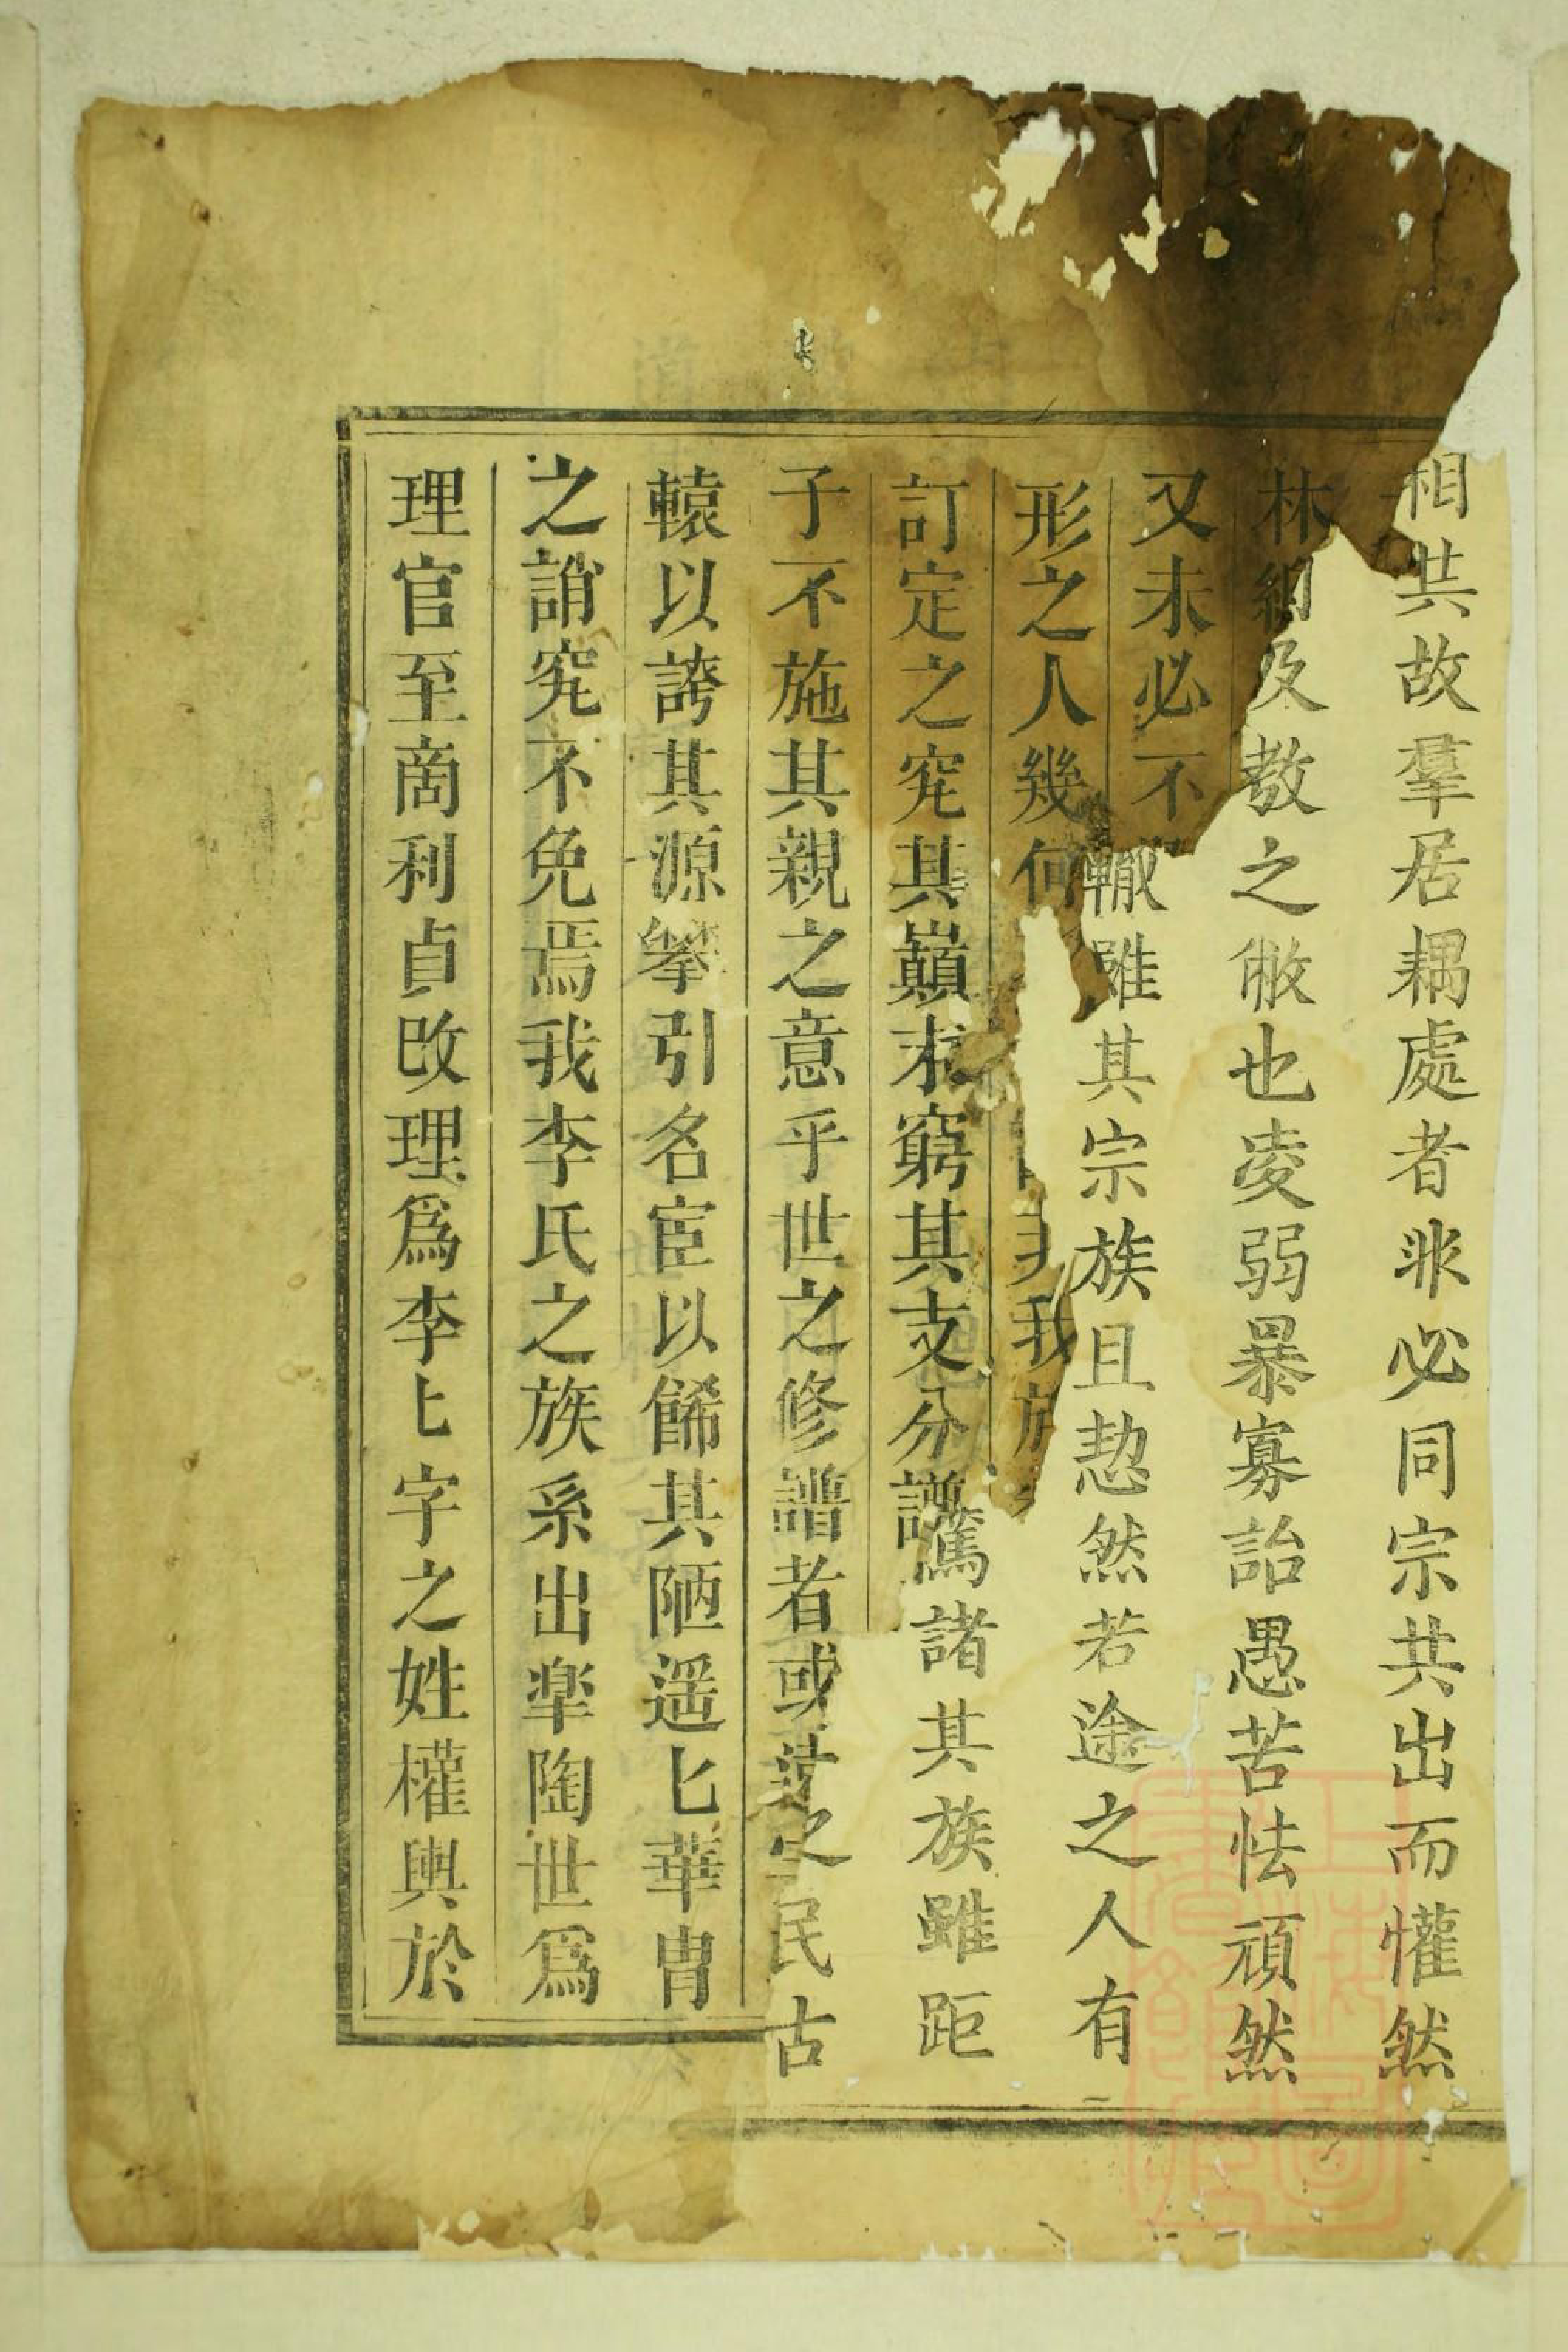 相共故羣居耦處者非必同宗共出而懽然
林網及教之敝也凌弱暴寡詒愚苦怯頑然
又未必不轍雖其宗族且恝然若途之人有
形之人幾何我族
訂定之究其巔末窮其支分譜篤諸其族雖距
子不施其親之意乎世之修譜者或之民古
轅以誇其源攀引名宦以餙其陋遥匕華胄
之誚究不免焉我李氏之族系出臯陶世爲
理官至啇利貞改理爲李匕字之姓權輿於